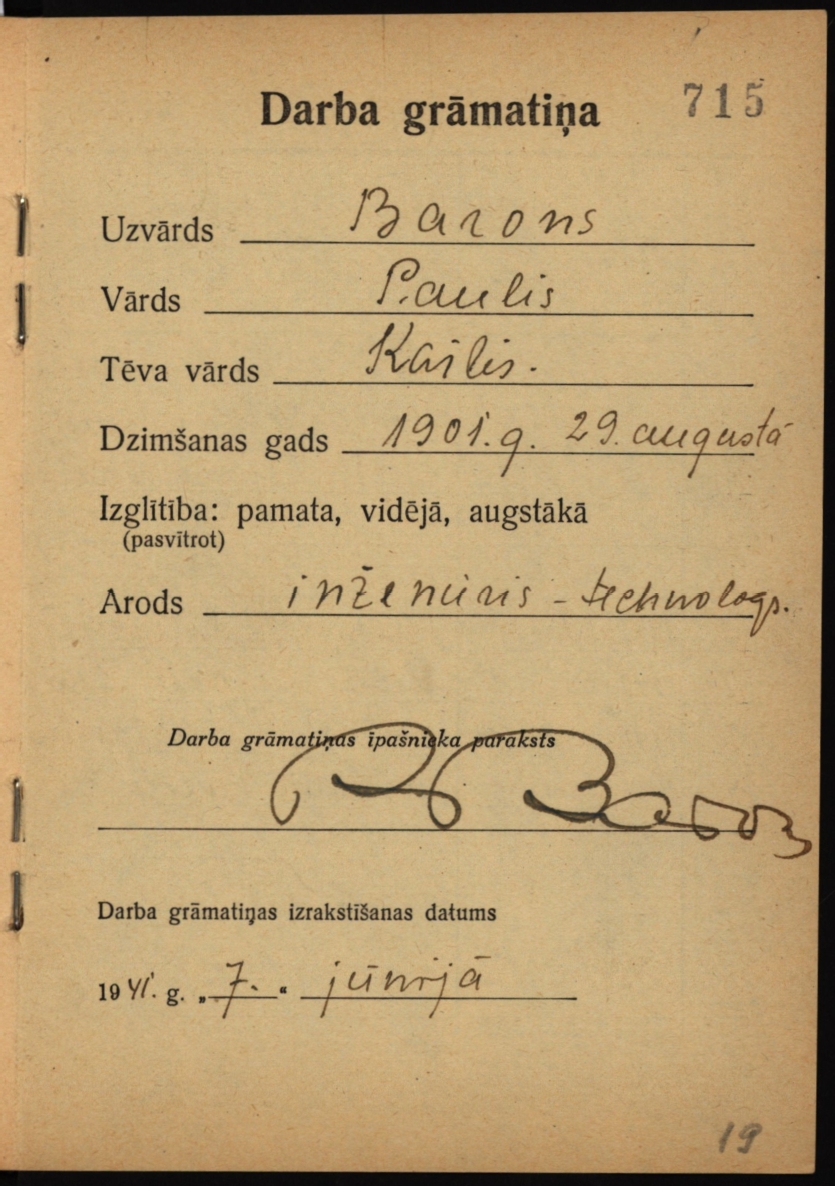 Darba grāmatiņa 715
Uzvārds Barons
Vārds Paulis
Tēva vārds Kārlis.
Dzimšanas gads 1901. g. 29. augustā
Izglītība: pamata, vidējā, augstākā
(pasvītrot)
Arods inženieris - technologs.
Darba grāmatiņas īpašnieka paraksts
P Barons
Darba grāmatiņas izrakstīšanas datums
1941. g. „7.“ jūnijā
19